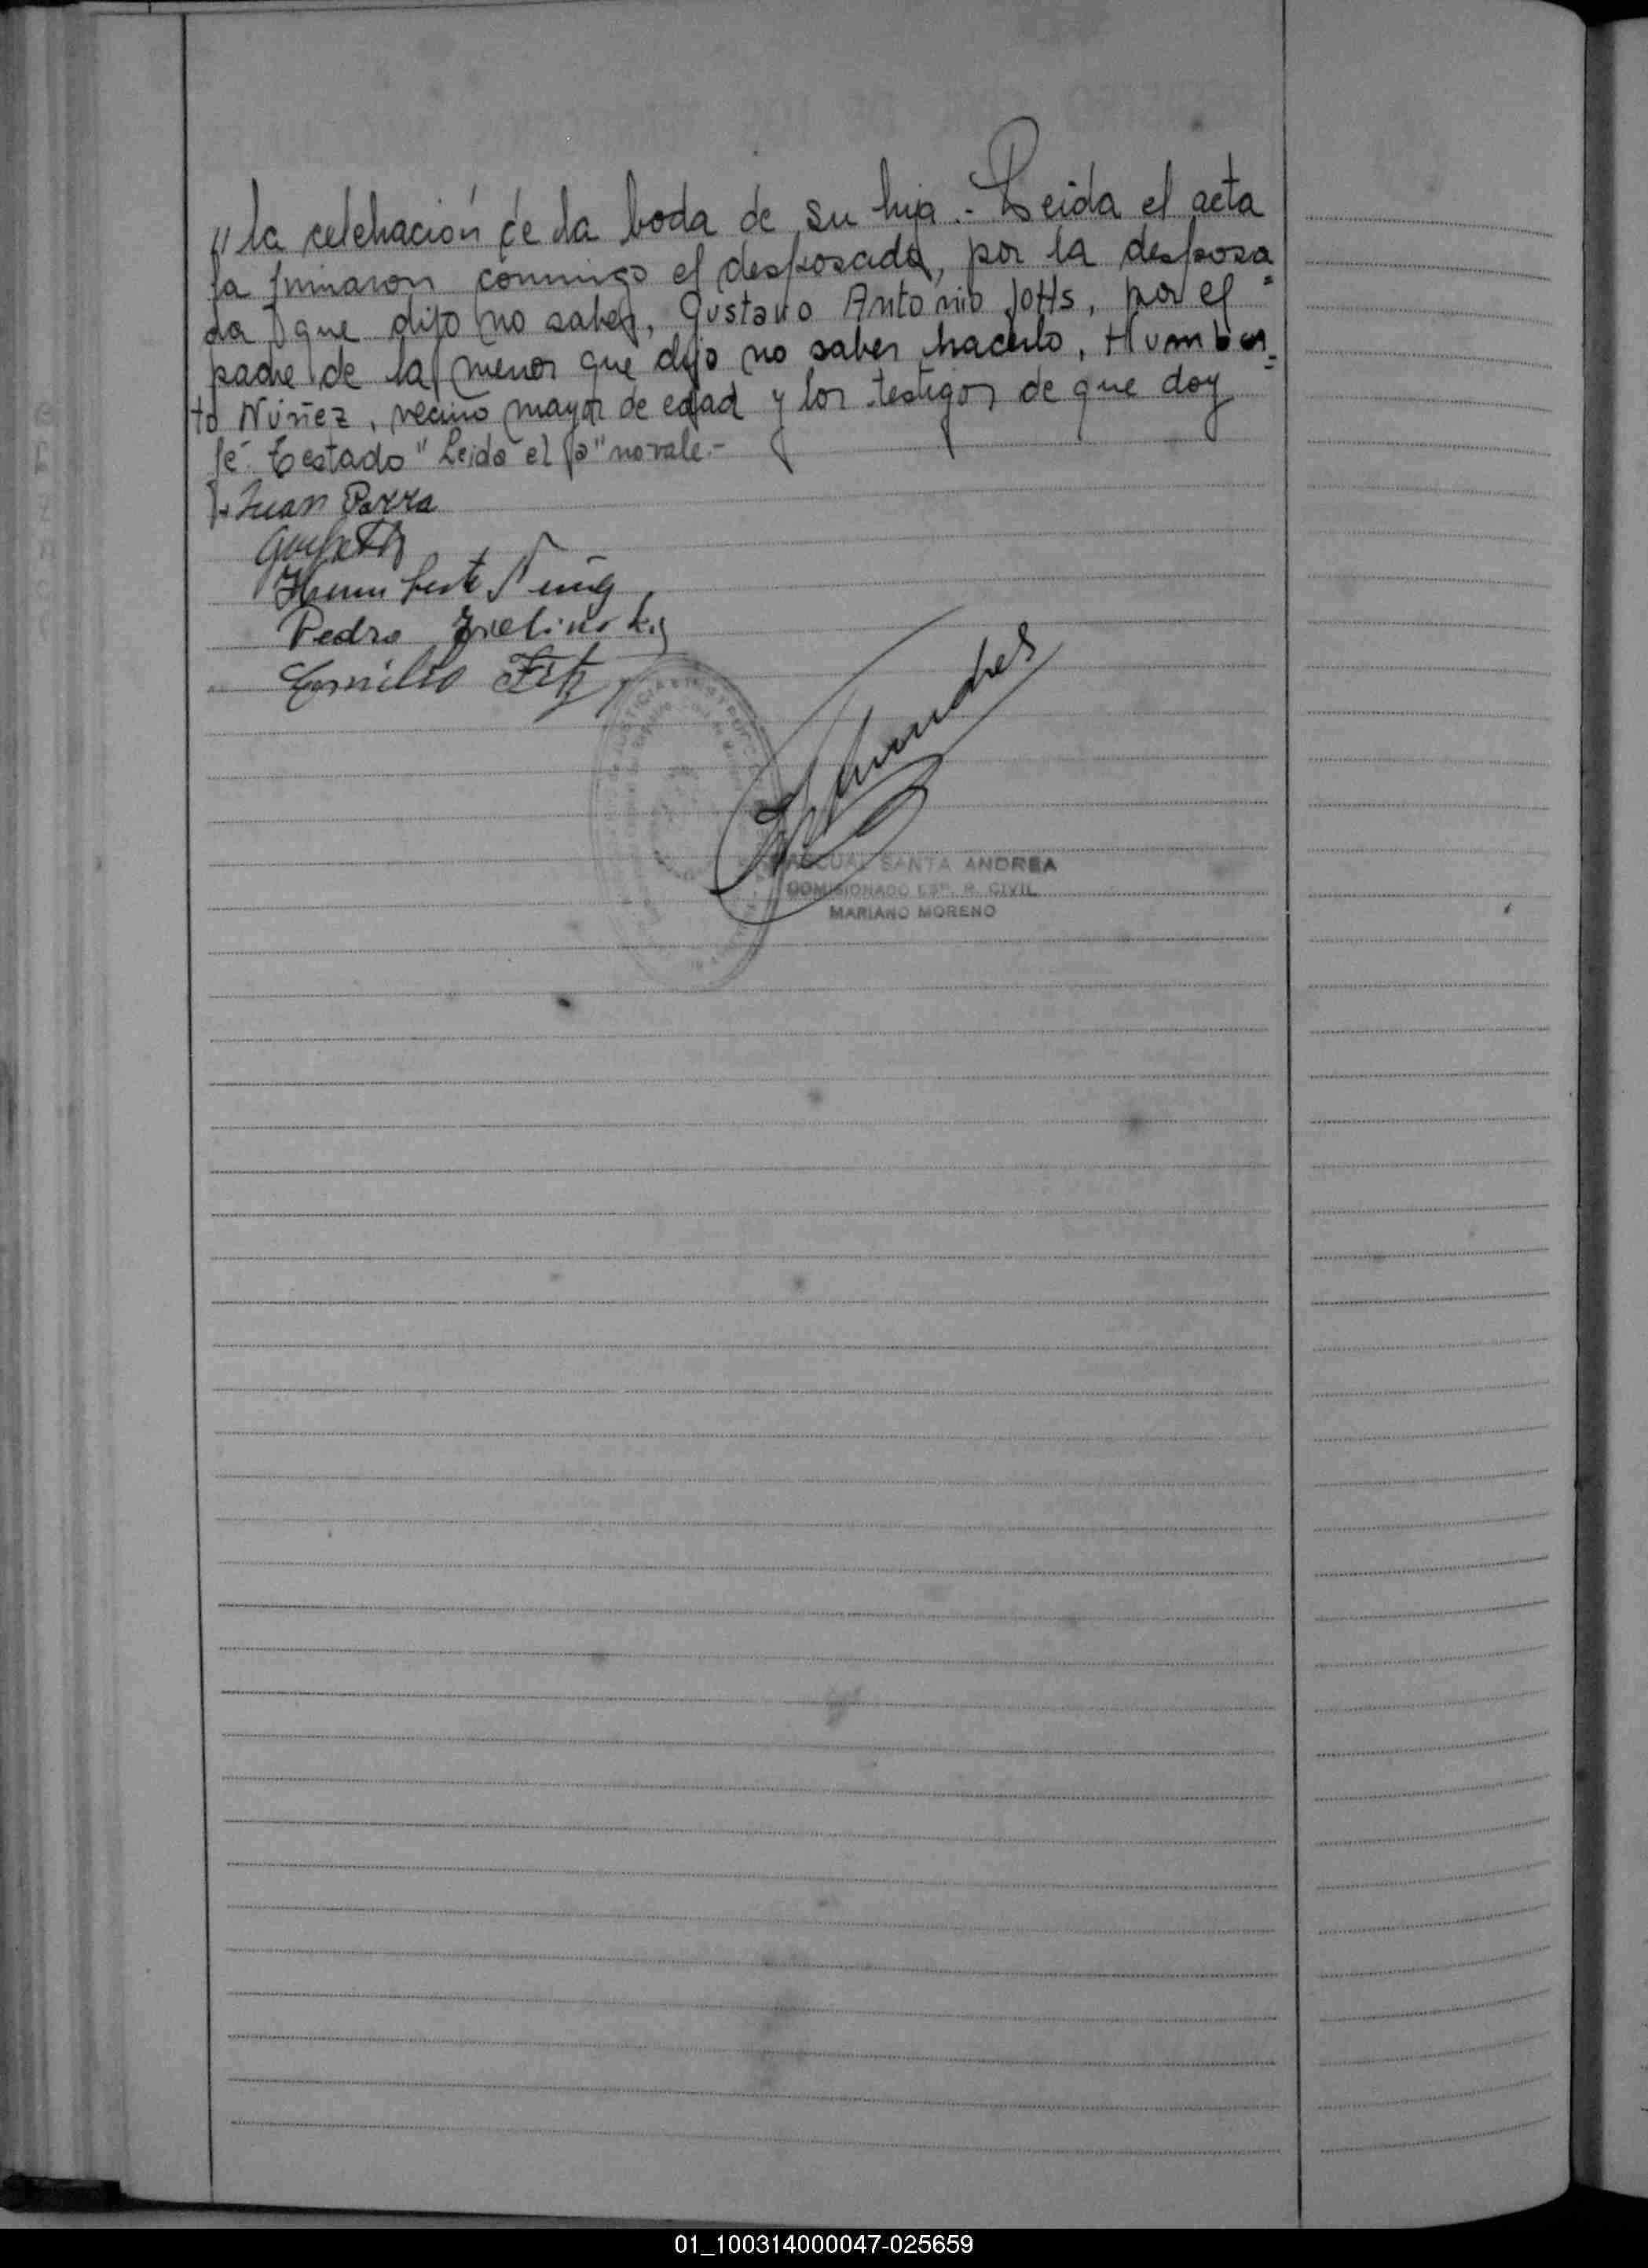 "la celebración de la boda de su hija.- Leida el acta
la firmaron conmigo el desposado, por la desposa=
da que dijo no saber, Gustavo Antonio Jotts, por el
padre de la menor que dijo no saber hacerlo, Humber=
to Núñez, vecino mayor de edad y los testigos de que doy
fé. Testado "Leida el la" no vale.-
Juan Parra
Humberto Nuñez
Pedro Zielinski
Emilio
PASCUAL SANTA ANDREA
COMISIONADO ESP. R. CIVIL
MARIANO MORENO
01_100314000047-025659